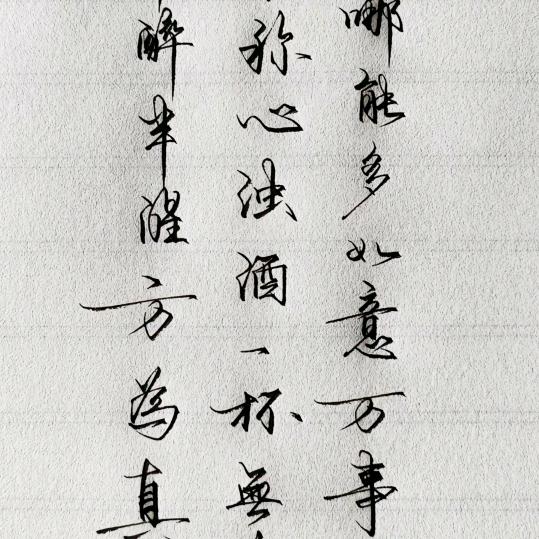 哪能多如意万事
称心浊酒一杯無
醉半醒方為真